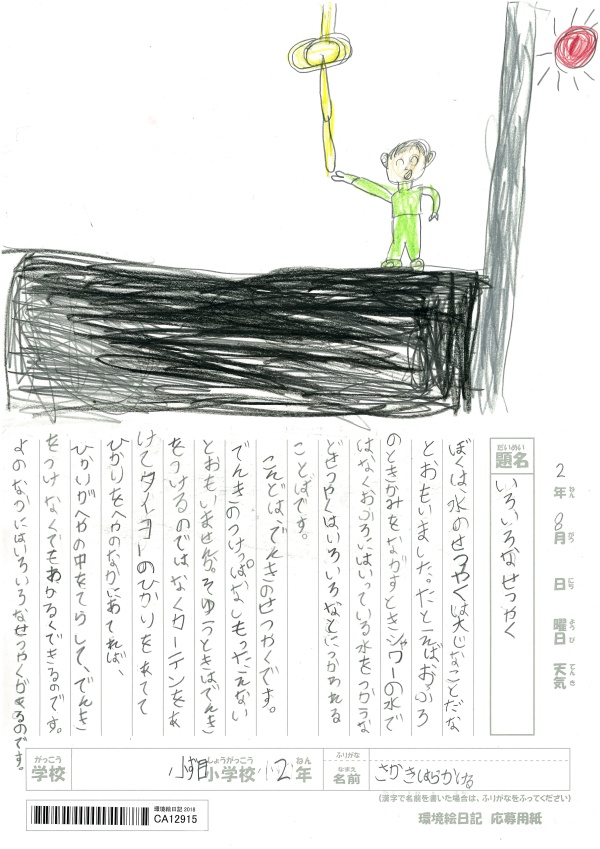 2年ねん 8月がつ 日にち 曜日ようび 天気てんき
だいめい
題名
いろいろなせつやく
ぼくは、水のせつやくは大じなことだな
とおもいました。たとえば、おふろ
のときかみをながすときシャワーの水で
はなくおふろにはいっている水をつかうな
どせつやくはいろいろなとこにつかわれる
ことばです。
こんどは、でんきのせつやくです。
でんきのつけっぱなしもったこえない
とおもいません。そゆうときはでんき
をつけるのではなくカーテンをあ
けてタイヨーのひかりをあてて
ひかりをへやのなかにあてれば、
ひかりがへやの中をてらして、でんき
をつけなくてもあかるくできるのです。
よのなかにはいろいろなせつやくがあるのです。
がっこう しょうがっこう ねん ふりがな
学校 小学校 2年 なまえ 名前 さかきばらかける
(漢字で名前を書いた場合は、ふりがなをふってください)
環境絵日記 2018
CA12915
環境絵日記 応募用紙